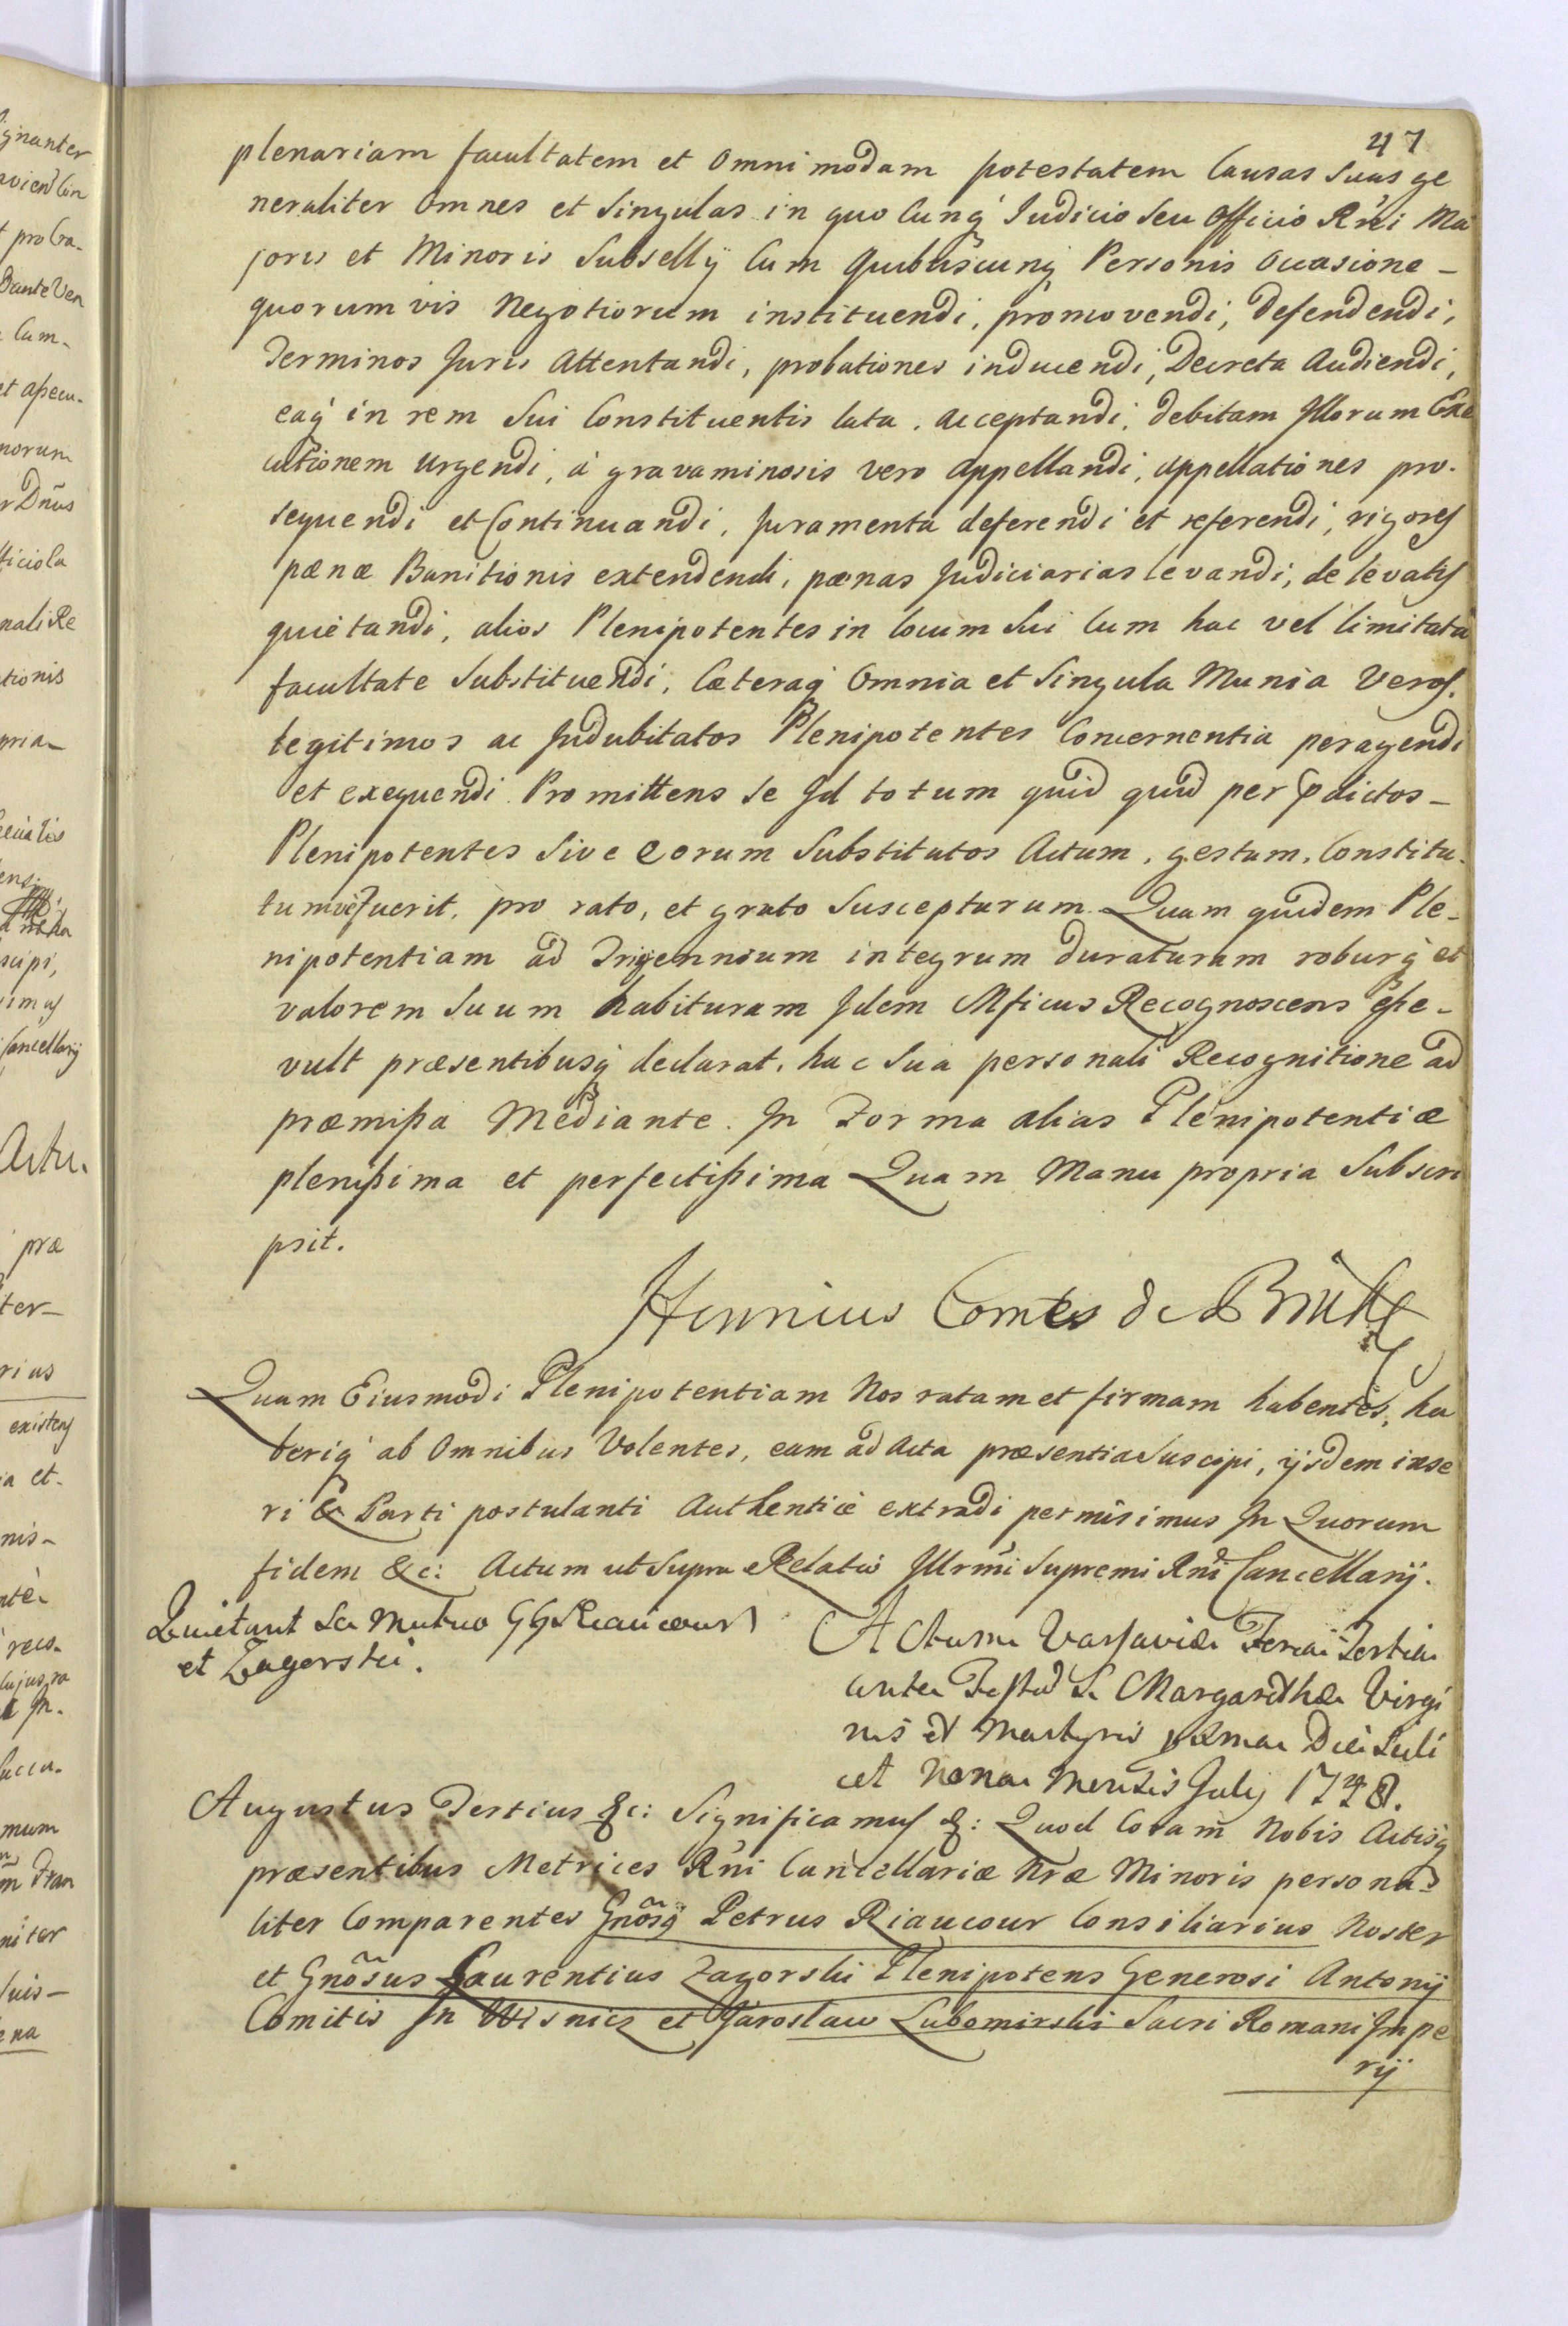 47
plenariam facultatem et Omnimodam potestatem Causas Suas ge
neraliter Omnes et Singulas in quo Cunq́ Judicio Seu Officio R̃ni Ma
joris et Minoris Subsellij Cum Quibuscunq́ Personis Occasione –
quorum vis Negotiorum instituendi, promovendi, Defendendi,
Terminos Juris Attentandi, probationes inducendi, Decreta Audiendi,
eaq́ in rem Sui Constituentis lata, acceptandi, debitam Illorum Exe
cutionem urgendi, à gravaminosis vero appellandi, appellationes pro-
sequendi et Continuandi, Juramenta deferendi et referendi, rigores
pænæ Banitionis extendendi, pænas Judiciarias levandi, de levatis
quietandi, alios Plenipotentes in locum Sui Cum hac vel limitata
facultate Substituendi, Cæteraq́ Omnia et Singula Munia Veros,
legitimos ac Indubitatos Plenipotentes Concernentia peragendi
et exequendi. Promittens Se Id totum quid quid per p̃dictos –
Plenipotentes Sive eorum Substitutos Actum, gestum, Constitu-
tumve fuerit, pro rato, et grato Suscepturum. Quam quidem Ple-
nipotentiam ad Triennium integrum duraturam roburq́ et
valorem Suum habituram Idem Mficus Recognoscens eße –
vult præsentibusq́ declarat, hac Sua personali Recognitione ad
præmißa Mediante. In Forma alias Plenipotentiæ
plenißima et perfectißima Quam Manu propria Subscri
psit.
Henricus Comes de Brühl
Quam Eiusmodi Plenipotentiam Nos ratam et firmam habentes, ha
beriq́ ab Omnibus Volentes, eam ad Acta præsentia Suscipi, ijsdem inse
ri & Parti postulanti Authenticè extradi permisimus In Quorum
fidem &c: Actum ut Supra Relatio Illrm̃i Supremi Rñi Cancellarij.
Quietant Se Mutuo GG Riaucour
et Zagorski.
Actum Varsaviæ Feria Tertia
ante Festũ S. Margarethæ Virgi
nis et Martyris proxima Die Scili
cet Nona Mensis Julij 1748.
Augustus Tertius &c: Significamus &: Quod Coram Nobis Actisq́
præsentibus Metrices R̃ni Cancellariæ Nræ Minoris persona=
liter Comparentes Gñosq́ Petrus Riaucour Consiliarius Noster
et Gnõsus Laurentius Zagorski Plenipotens Generosi Antonij
Comitis In Wisnicz et Jaroslaw Lubomirski Sacri Romani Impe
rij